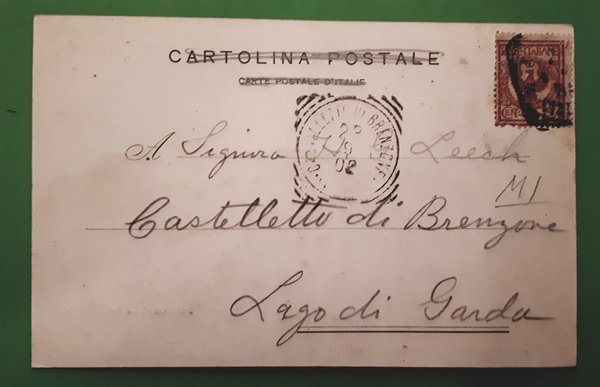 CARTOLINA POSTALE
CARTE POSTALE D'ITALIE
CASTELLETTO DI BRENZONE
9
02
A Signora H Leech
M1
Castelletto di Brenzone
Lago di Garda